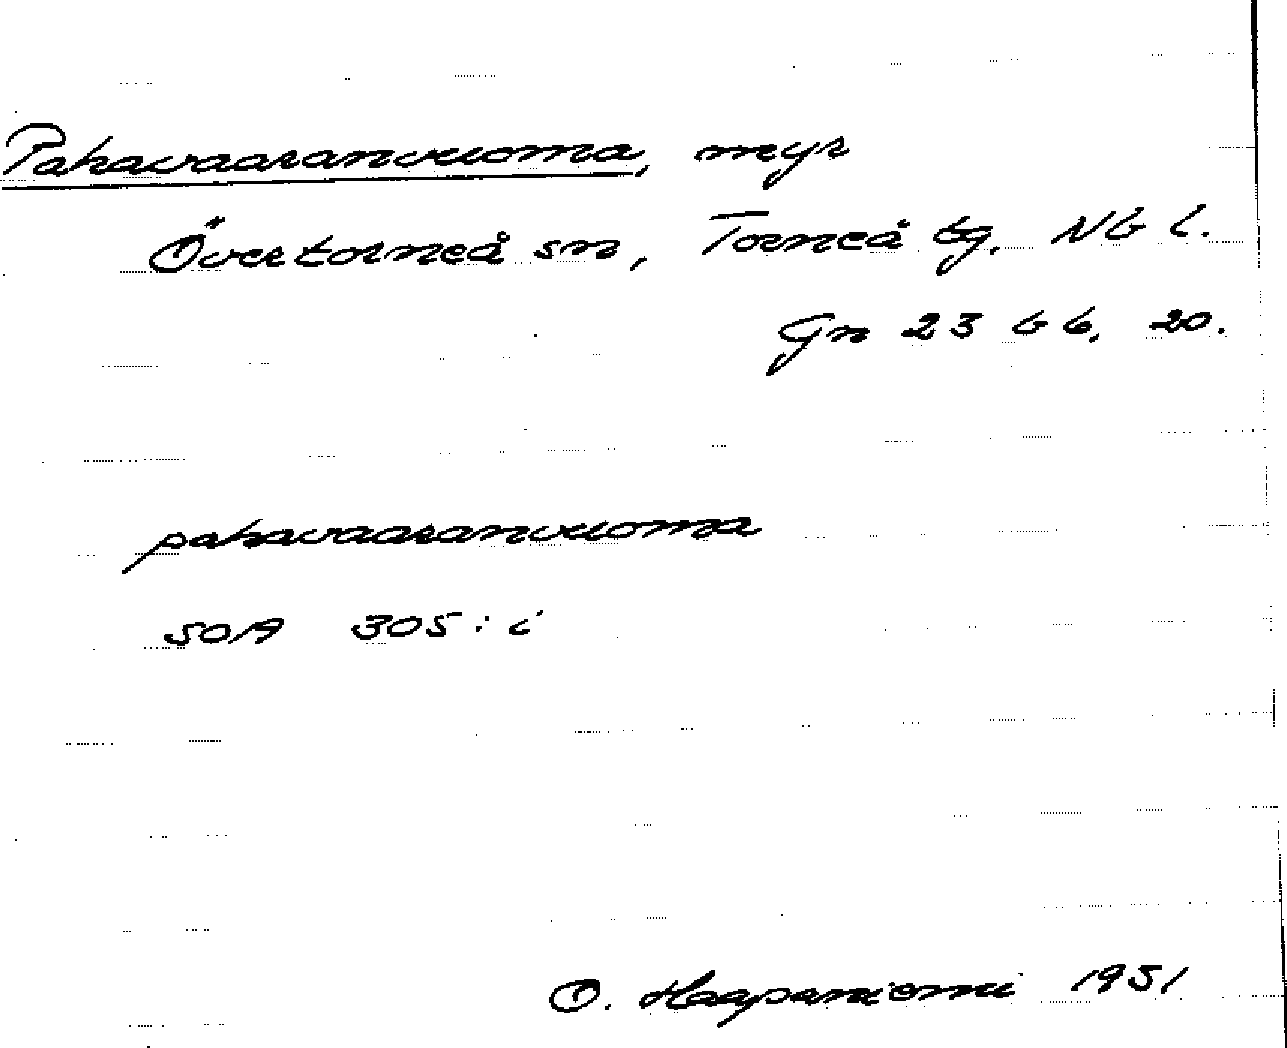 Pahavaaranvuoma, myr
Övertorneå sn, Torneå tg. Nb l.
Gn 23 b 6, 20.
pahavaaranvuoma
SOA 305: i
O. Haapaniemi 1951